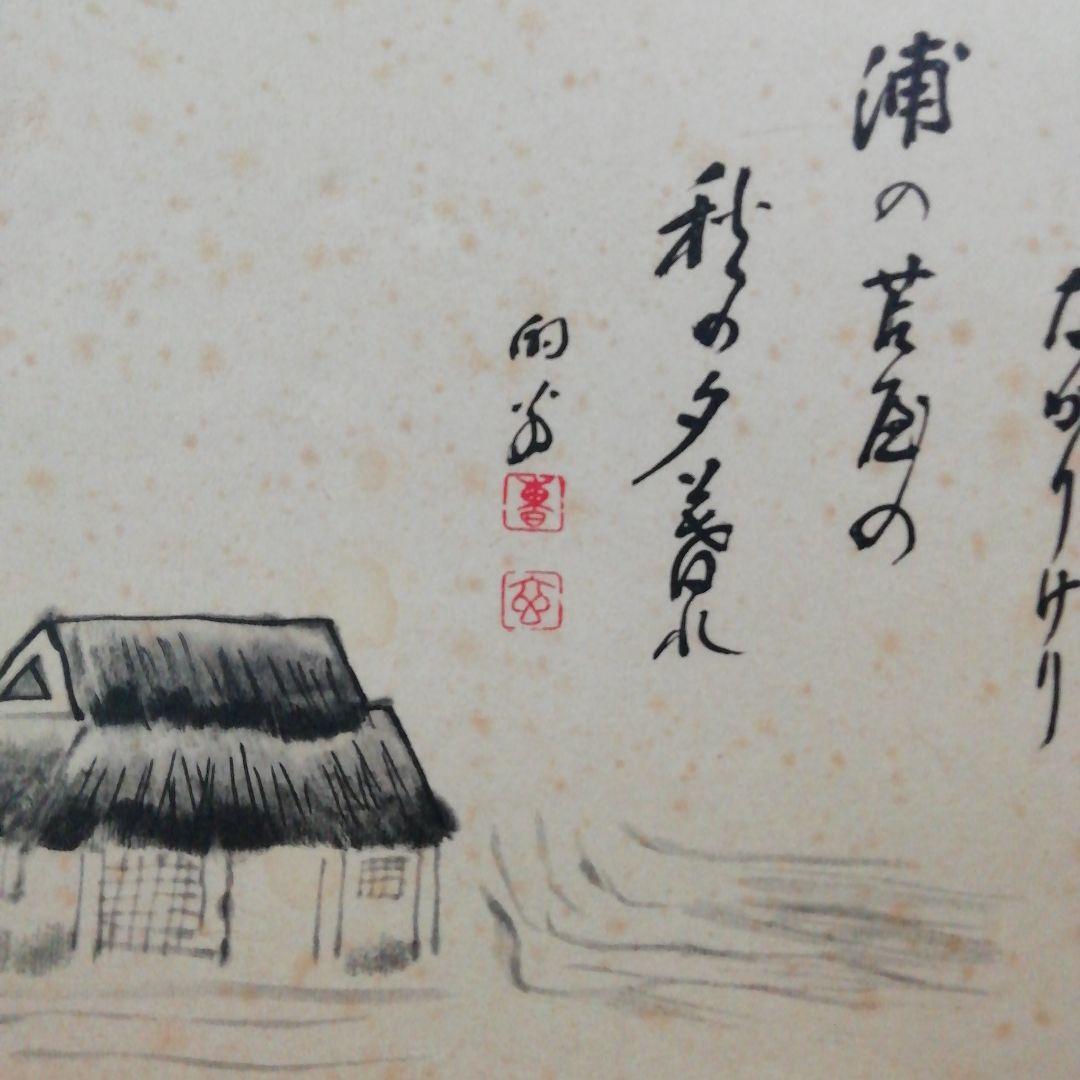 なかりけり
浦の苫屋の
秋の夕暮れ